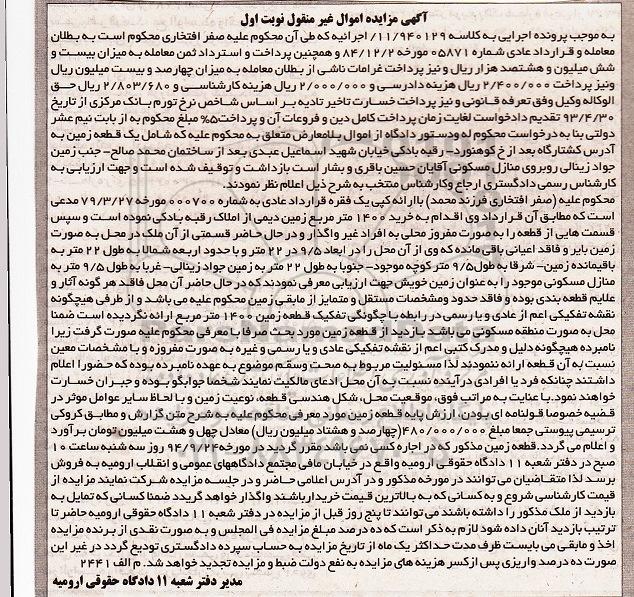 آگهی مزایده اموال غیر منقول نوبت اول
به موجب پرونده اجرایی به کلاسه ۱۱/۹۴۰۱۲۹/ اجرائیه که طی آن محکوم علیه صفر افتخاری محکوم است به بطلان
معامله و قرارداد عادی شماره ۰۵۸۷۱ مورخه ۸۴/۱۲/۲ و همچنین پرداخت و استرداد ثمن معامله به میزان بیست و
شش میلیون و هشتصد هزار ریال و نیز پرداخت غرامات ناشی از بطلان معامله به میزان چهارصد و بیست میلیون ریال
ونیز پرداخت ۲/۴۰۰/۰۰۰ ریال هزینه دادرسی و ۲/۰۰۰/۰۰۰ ریال هزینه کارشناسی و ۲/۸۰۳/۶۸۰ ریال حق
الوکاله وکیل وفق تعرفه قانونی و نیز پرداخت خسارت تاخیر تادیه بر اساس شاخص نرخ تورم بانک مرکزی از تاریخ
۹۳/۴/۳۰ تقدیم دادخواست لغایت زمان پرداخت کامل دین و فروعات آن و پرداخت۵% مبلغ محکوم به از بابت نیم عشر
دولتی بنا به درخواست محکوم له ودستور دادگاه از اموال بلامعارض متعلق به محکوم علیه که شامل یک قطعه زمین به
آدرس کشتارگاه بعد از خ کوهنورد- رقبه بادکی خیابان شهید اسماعیل عبدی بعد از ساختمان محمد صالح- جنب زمین
جواد زینالی روبروی منازل مسکونی آقایان حسین باقری و بشار است بازداشت و توقیف شده است و جهت ارزیابی به
کارشناس رسمی دادگستری ارجاع وکارشناس منتخب به شرح ذیل اعلام نظر نمودند.
محکوم علیه (صفر افتخاری فرزند محمد) باارائه کپی یک فقره قرارداد عادی به شماره ۰۰۰۷۰۰ مورخه ۷۹/۳/۲۷ مدعی
است که مطابق آن قرارداد وی اقدام به خرید ۱۴۰۰ متر مربع زمین دیمی از املاک رقبه بادکی نموده است و سپس
قسمت هایی از قطعه را به صورت مفروز محلی به افراد غیر واگذار و در حال حاضر قسمتی از آن ملک در محل به صورت
زمین بایر و فاقد اعیانی باقی مانده که وی آن محل را در ابعاد ۹/۵ در ۲۲ متر و با حدود اربعه شمالا به طول ۲۲ متر به
باقیمانده زمین- شرقا به طول ۹/۵ متر کوچه موجود- جنوبا به طول ۲۲ متر به زمین جواد زینالی- غربا به طول ۹/۵ متر به
منازل مسکونی موجود را به عنوان زمین خویش جهت ارزیابی معرفی نمودند که در حال حاضر آن محل فاقد هر گونه آثار و
علایم قطعه بندی بوده و فاقد حدود ومشخصات مستقل و متمایز از مابقی زمین محکوم علیه می باشد و از طرفی هیچگونه
نقشه تفکیکی اعم از عادی و یا رسمی در رابطه با چگونگی تفکیک قطعه زمین ۱۴۰۰ متر مربع ارائه نگردیده است ضمنا
محل به صورت منطقه مسکونی می باشد بازدید از قطعه زمین مورد بحث صرفا با معرفی محکوم علیه صورت گرفت زیرا
نامبرده هیچگونه دلیل و مدرک کتبی اعم از نقشه تفکیکی عادی و یا رسمی و غیره به صورت مفروزه و با مشخصات معین
نسبت به آن قطعه ارائه ننمودند لذا مسئولیت مربوط به صحت وسقم موضوع به عهده نامبرده بوده که حضورا اعلام
داشتند چنانکه فرد یا افرادی در آینده نسبت به آن محل ادعای مالکیت نمایند شخصا جوابگو بوده و جبران خسارت
خواهند نمود. با عنایت به مراتب فوق، موقعیت محل، شکل هندسی قطعه، نوعیت زمین و با لحاظ سایر عوامل موثر در
قضیه خصوصا قولنامه ای بودن، ارزش پایه قطعه زمین مورد معرفی محکوم علیه به شرح متن گزارش و مطابق کروکی
ترسیمی پیوستی جمعا مبلغ ۴۸۰/۰۰۰/۰۰۰(چهارصد و هشتاد میلیون ریال) معادل چهل و هشت میلیون تومان برآورد
و اعلام می گردد. قطعه زمین مذکور که در اجاره کسی نمی باشد مقرر گردید در مورخه روز سه شنبه ساعت ۱۰
صبح در دفتر شعبه ۱۱ دادگاه حقوقی ارومیه واقع در خیابان مافی مجتمع دادگاههای عمومی و انقلاب ارومیه به فروش
برسد لذا متقاضیان می توانند در مورخه مذکور و در آدرس اعلامی حاضر و در جلسه مزایده شرکت نمایند مزایده از
قیمت کارشناسی شروع و به کسانی که به بالاترین قیمت خریدار باشند واگذار خواهد گردید ضمنا کسانی که تمایل به
بازدید از ملک مذکور را داشته باشند می توانند تا پنج روز قبل از مزایده در دفتر شعبه ۱۱ دادگاه حقوقی ارومیه حاضر تا
ترتیب بازدید آنان داده شود لازم به ذکر است که ده درصد مبلغ مزایده فی المجلس و به صورت نقدی از برنده مزایده
اخذ و مابقی می بایست ظرف مدت حداکثر یک ماه از تاریخ مزایده به حساب سپرده دادگستری تودیع گردد در غیر این
صورت ده درصد واریزی پس از کسر هزینه های مزایده به نفع دولت ضبط و مزایده تجدید خواهد شد. م الف ۲۴۴۱
مدیر دفتر شعبه ۱۱ دادگاه حقوقی ارومیه